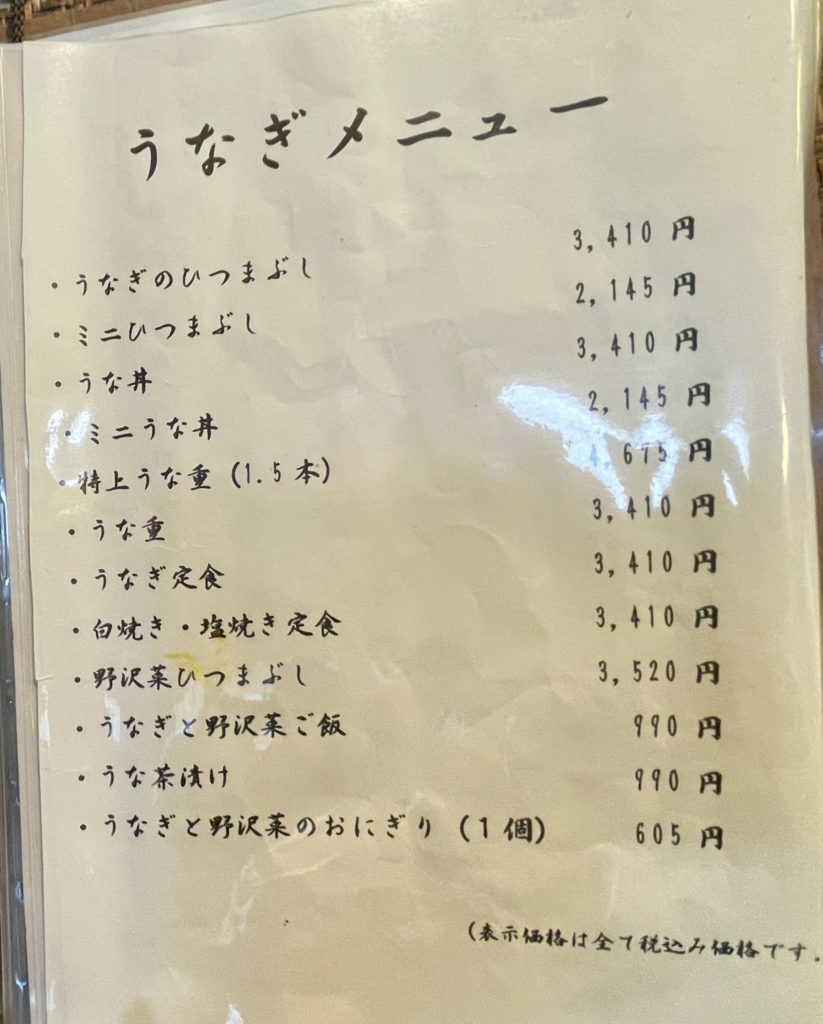 うなぎメニュー
・うなぎのひつまぶし 3,410 円
・ミニひつまぶし 2,145 円
・うな丼 3,410 円
・ミニうな丼 2,145 円
・特上うな重 (1.5 本) 675 円
・うな重 3,410 円
・うなぎ定食 3,410 円
・白焼き・塩焼き定食 3,410 円
・野沢菜ひつまぶし 3,520 円
・うなぎと野沢菜ご飯 990 円
・うな茶漬け 990 円
・うなぎと野沢菜のおにぎり (1 個) 605 円
(表示価格は全て税込み価格です.